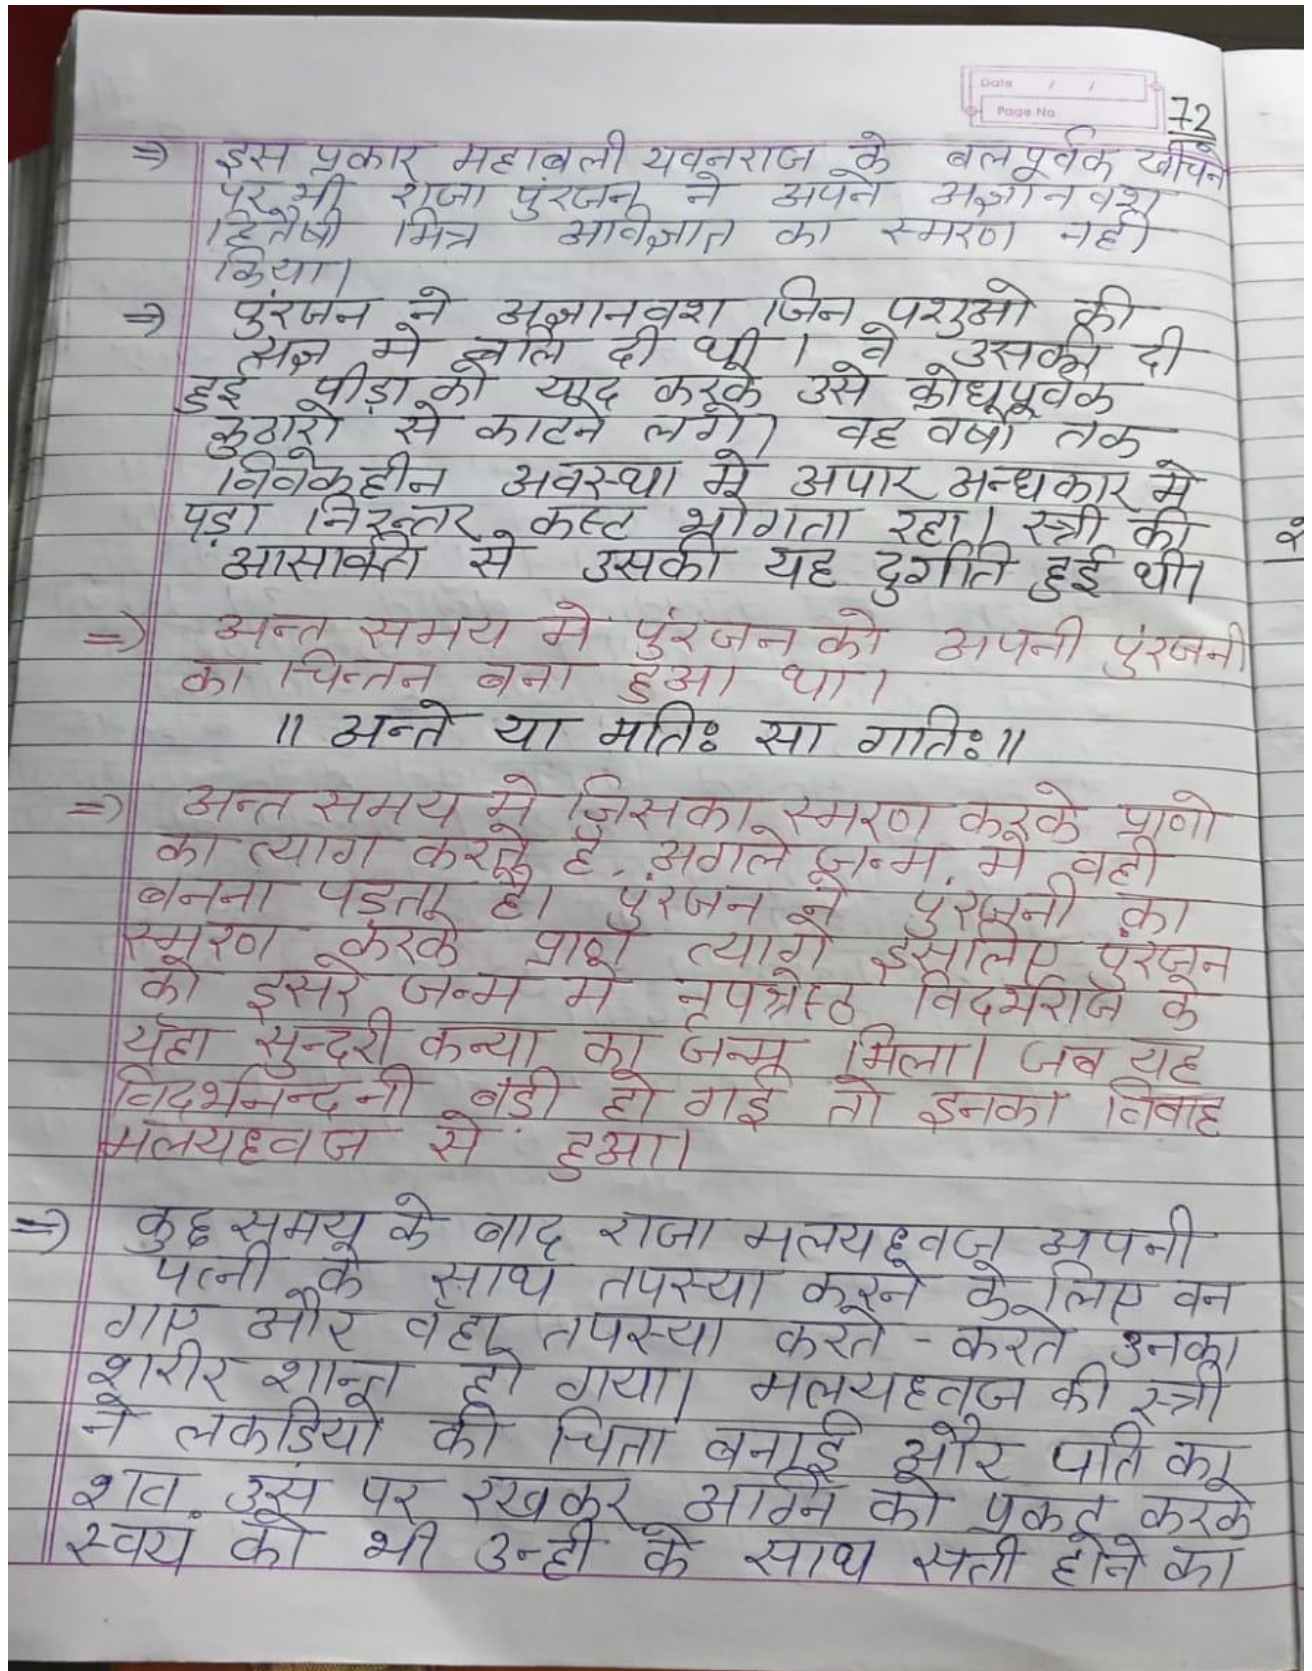 Date / /
Page No
72
⇒ इस प्रकार महाबली यवनराज के बलपूर्वक खींचने
पर भी राजा पुंरजन ने अपने अज्ञानवश
हितैषी मित्र अविज्ञात का स्मरण नही
किया।
⇒ पुंरजन ने अज्ञानवश जिन पशुओ की
यज्ञ मे बलि दी थी। वे उसकी दी
हुई पीड़ा को याद करके उसे क्रोधपूर्वक
कुठारो से काटने लगे। वह वर्षो तक
विवेकहीन अवस्था मे अपार अन्धकार मे
पड़ा निरन्तर कस्ट भोगता रहा। स्त्री की
आसक्ति से उसकी यह दुर्गति हुई थी।
⇒ अन्त समय मे पुंरजन को अपनी पुंरजनी
का चिन्तन बना हुआ था।
॥ अन्ते या मतिः सा गतिः॥
⇒ अन्त समय मे जिसका स्मरण करके प्राणो
का त्याग करते है, अगले जन्म मे वही
बनना पड़ता है। पुंरजन ने पुंरजनी का
स्मरण करके प्राण त्यागे इसलिए पुंरजन
को दूसरे जन्म मे नृपश्रेस्ठ विदर्भराज के
यँहा सुन्दरी कन्या का जन्म मिला। जब यह
विदर्भनन्दनी बड़ी हो गई तो इनका विवाह
मलयध्वज से हुआ।
⇒ कुछ समय के बाद राजा मलयध्वज अपनी
पत्नी के साथ तपस्या करने के लिए वन
गए और वँहा तपस्या करते - करते उनका
शरीर शान्त हो गया। मलयध्वज की स्त्री
ने लकड़ियो की चिता बनाई और पति का
शव उस पर रखकर अग्नि को प्रकट करके
स्वयं को भी उन्ही के साथ सती होने का